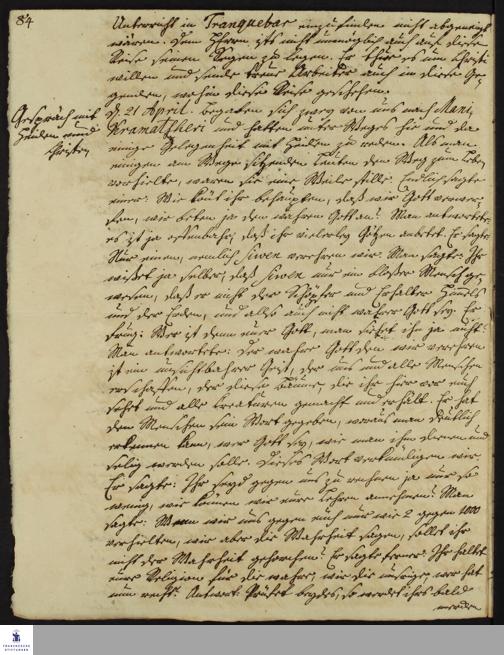 84
Unterricht in Tranquebar einzufinden nicht abgeneigt
wären. Dem Herrn ists nicht unmöglich auch auf diese
Reise seinen Segen zu legen. Er thue es um Christi
willen und sende treue Arbeiter auch in diese Ge-
genden, wohin diese Reise geschehen.
Gespräch mit
Heiden und
Christen
D. 21 April. begaben sich zwey von uns nach Mani-
kramattscheri und hatten unter Weges hie und da
einige Gelegenheit mit Heiden zu reden. Als man
einigen am Wege sitzenden Leuten den Weg zum Leben
vorhielte, waren sie eine Weile stille. Endlich sagte
einer: Wie könt ihr behaupten, daß wir Gott verwer-
fen, wir beten ja den wahren Gott an? Man antwortete:
es ist ja offenbahr, daß ihr vielerley Götzen anbetet. Er sagte:
Nur einen, nemlich Siwen verehren wir. Man sagte: Ihr
wißet ja selber, daß Siwen nur ein bloßer Mensch ge-
wesen, daß er nicht der Schöpfer und Erhalter Himmels
und der Erden, und also auch nicht wahrer Gott sey. Er
frug: Wer ist denn euer Gott, man siehet ihn ja nicht?
Man antwortete: Der wahre Gott den wir verehren
ist ein unsichtbahrer Geist, der uns und alle Menschen
erschaffen, der diese Bäume, die ihr hier vor euch
sehet und alle Creaturen gemacht und erhält. Er hat
den Menschen sein Wort gegeben, woraus man deutlich
erkennen kann, wer Gott sey, wie man ihm dienen und
selig werden solle. Dieses Wort verkündigen wir.
Er sagte: Ihr seyd gegen uns zu rechnen ja nur so
wenig, wie können wir eure Lehre annehmen? Man
sagte: Wenn wir uns gegen euch nur wie 2 gegen 1000
verhielten, wir aber die Wahrheit sagen, soltet ihr
nicht der Wahrheit gehorchen? Er sagte ferner: Ihr haltet
eure Religion für die wahre, wir die unsrige, wer hat
nun recht? Antwort: Prüfet beydes, so werdet ihrs bald
merken
FRANCKESCHE
STIFTUNGEN